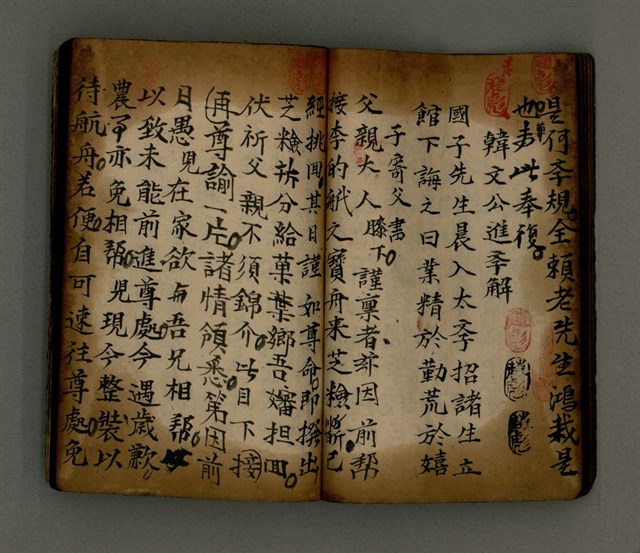 是何夲規全賴老先生鴻裁是
也專此奉復
韓文公進夲解
國子先生晨入太夲招諸生立
館下誨之曰業精於勤荒於嬉
子寄父書
父親大人膝下謹禀者玆因前帮
接李的舭之寶舟来芝檢
經挑囬其目謹如尊命即撥出
芝檢拆分給菓葉鄉吾嬸担囬
伏祈父親不須錦介此目下接
再尊諭一片諸情領悉第因前
日愚兄在家欲与吾兄相帮
以致未能前進尊處今遇歲歉
農亦免相帮児現今整裝以
待航舟若便自可速往尊處免